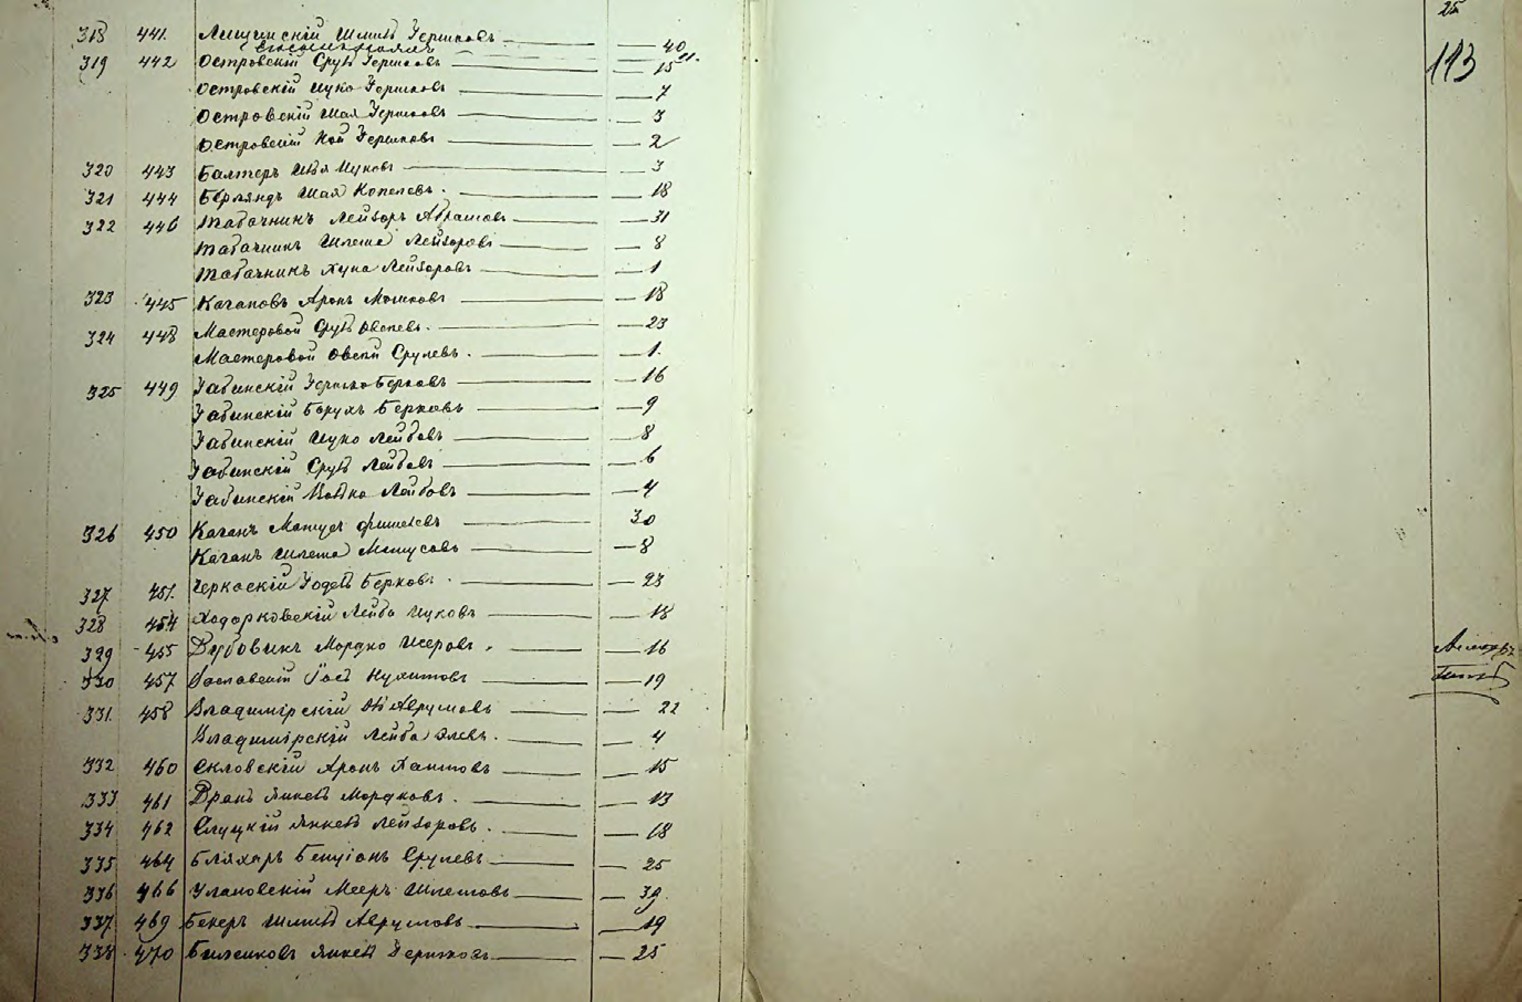 318 441. Лищинскій Шмиль Гершковъ — 40
319 442 Островскій Сруль Гершковъ — 15
Островскій Ицко Гершковъ — 7
Островскій Шая Гершковъ — 3
Островскій Гершковъ — 2
320 443 Балтеръ Ицковъ — 3
321 444 Берляндъ Шая Копелевъ. — 18
322 446 Табачникъ Лейзоръ Абрамовъ — 31
Табачникъ Шлема Лейзоровъ — 8
Табачникъ Хуна Лейзоровъ — 1
323 445 Кагановъ Аронъ Мошковъ — 18
324 448 Мастеровой Сруль Овсеевъ. — 23
Мастеровой Овсей Срулевъ. — 1.
325 449 Габинскій Гершко Берковъ — 16
Габинскій Борухъ Берковъ — 9
Габинскій Ицко Лейбовъ — 8
Габинскій Сруль Лейбовъ — 6
Габинскій Лейбовъ — 4
326 450 Каганъ Матусъ Фишелевъ 30
Каганъ Шлема Матусовъ — 8
327 451. Черкаскій Годель Берковъ. — 23
328 454 Ходорковскій Лейба Ицковъ — 18
329 455 Дубовикъ Мордко Шеровъ. — 16
330 457 — 19
331. 458 Владимірскій Аврумовъ — 22
Владимірскій Лейба Элевъ. — 4
332 460 Скловскій Аронъ Хаимовъ — 15
333 461 Янкель Мордковъ. — 13
334 462 Слуцкій Янкель Лейзоровъ. — 18
335 464 Бляхаръ Бенціонъ Срулевъ — 25
336 466 Улановскій Мееръ Шлемовъ — 39.
337 469 Бекеръ Шмиль Аврумовъ — 19
338 470 Янкель Гершковъ — 25
25
113